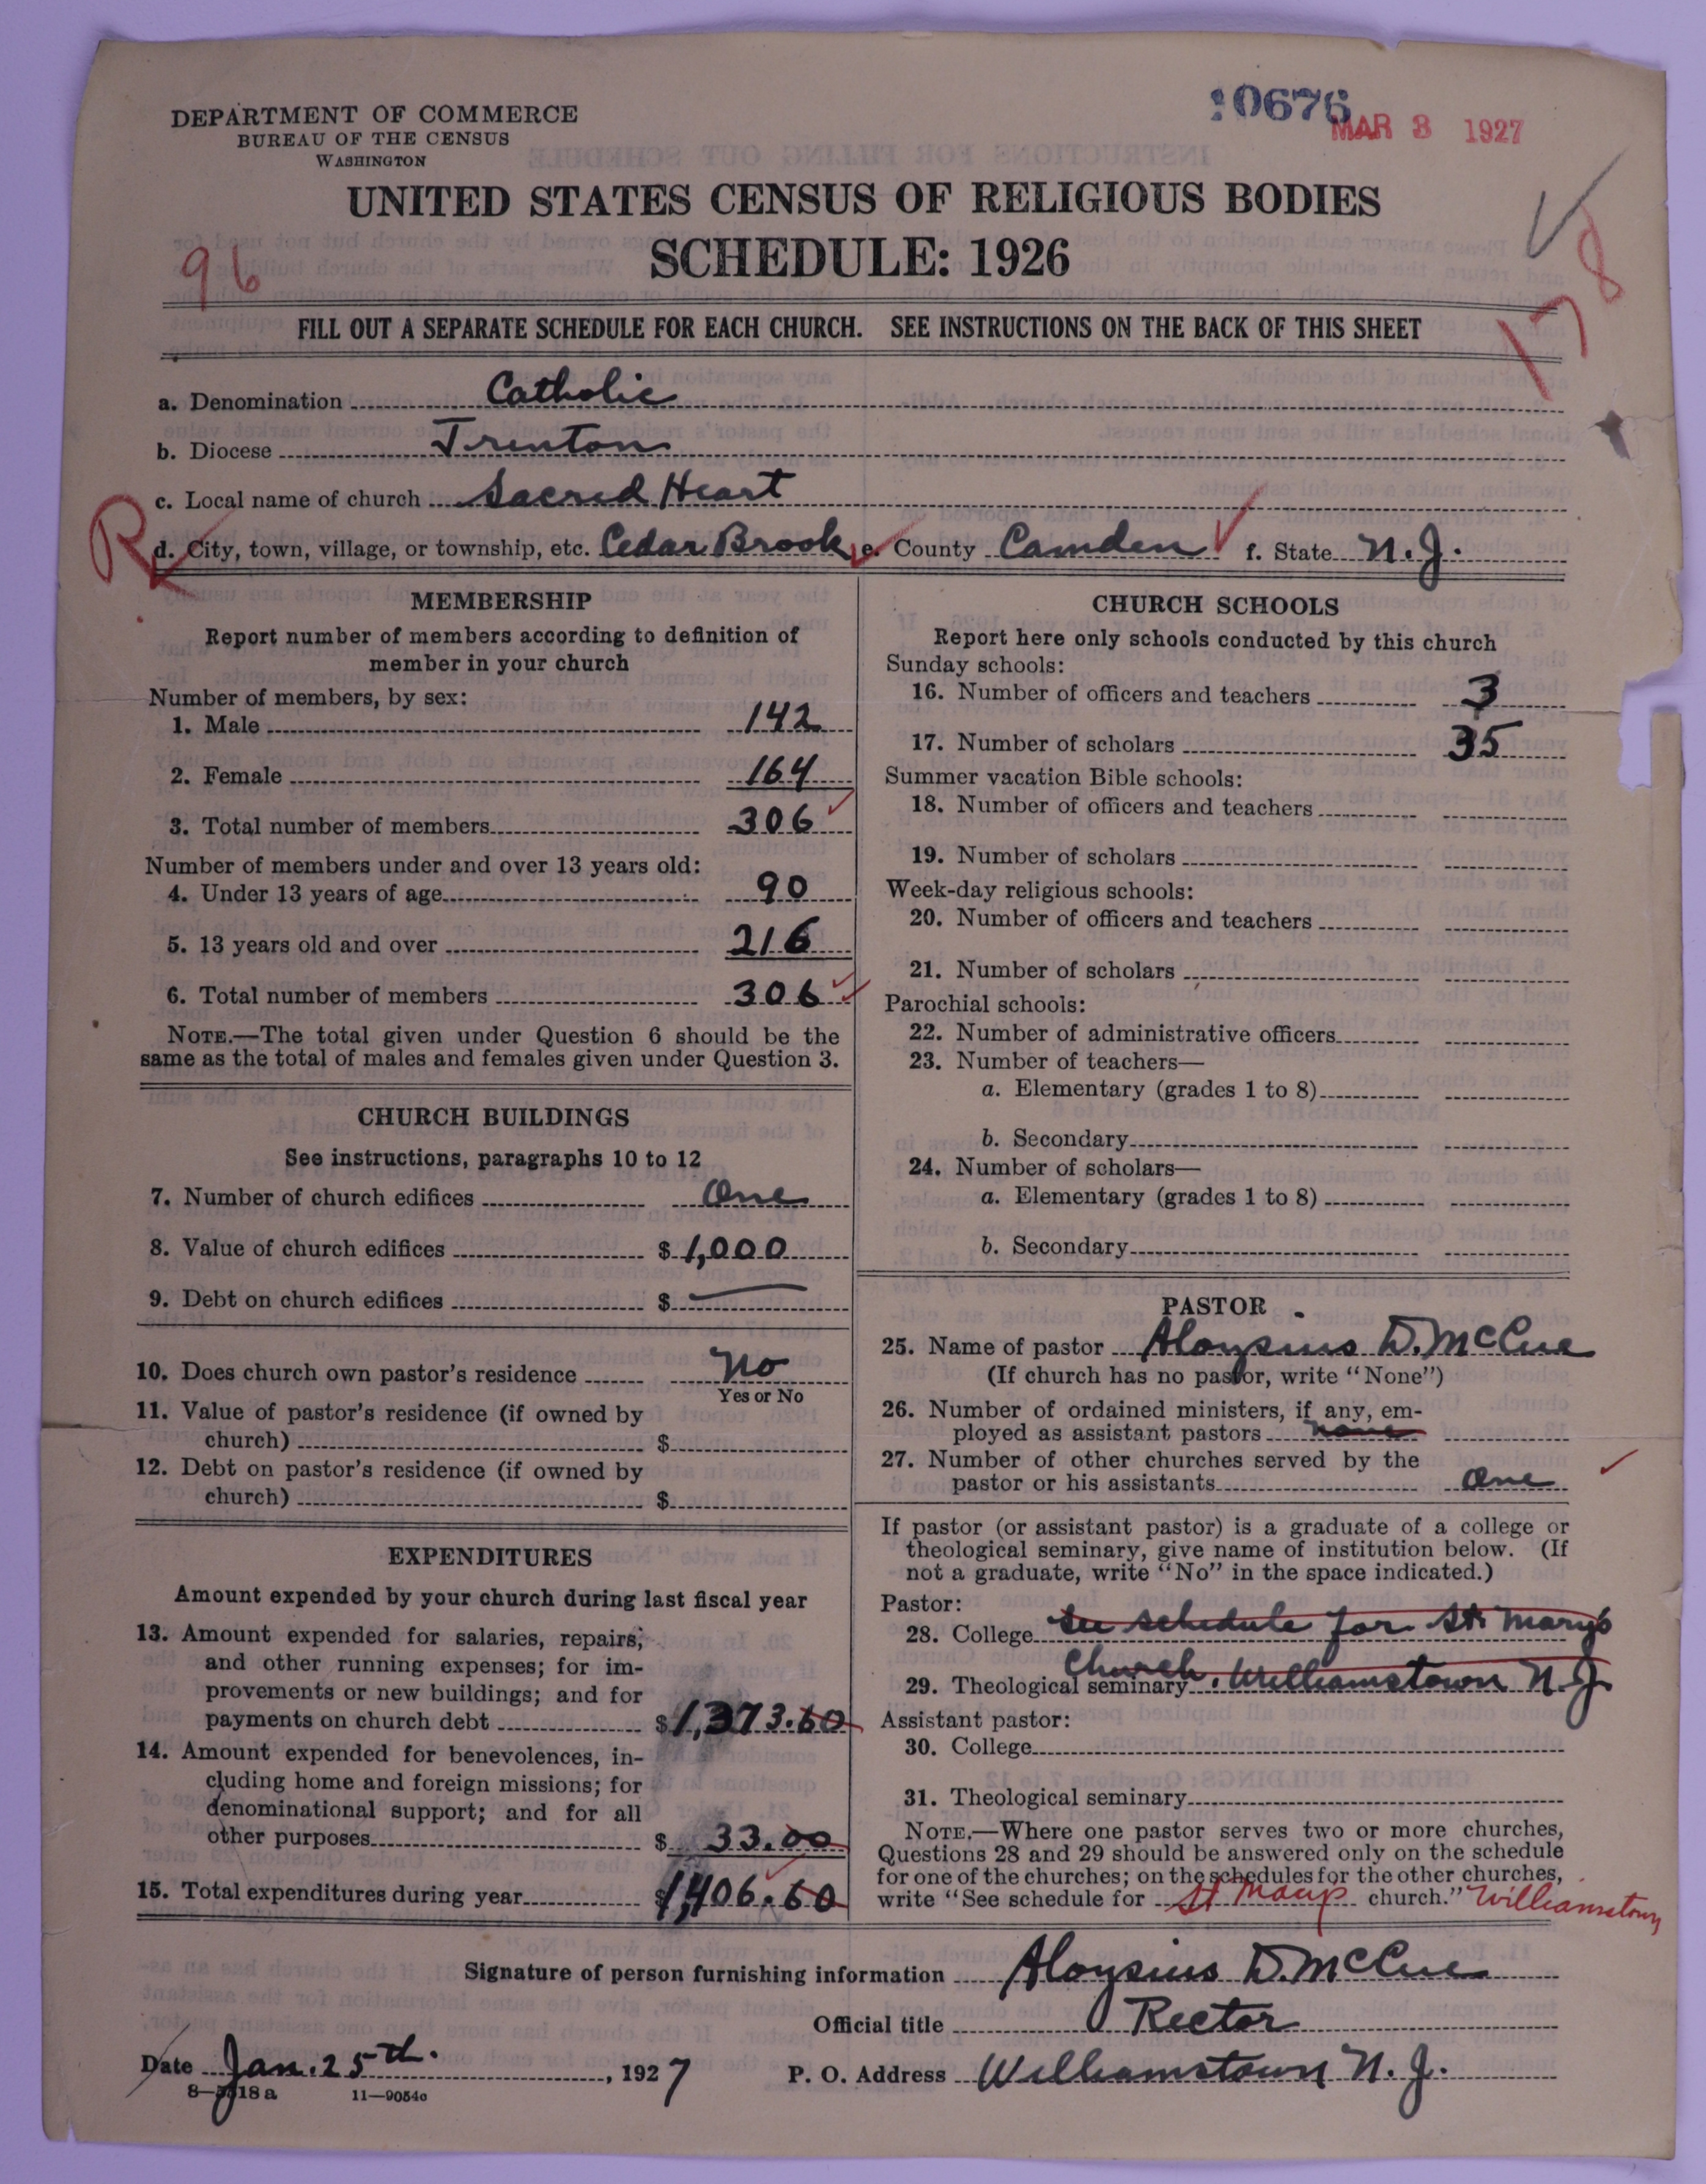 DEPARTMENT OF COMMERCE
BUREAU OF THE CENSUS
WASHINGTON
10676
MAR 3 1927
UNITED STATES CENSUS OF RELIGIOUS BODIES
SCHEDULE: 1926
96
178
FILL OUT A SEPARATE SCHEDULE FOR EACH CHURCH. SEE INSTRUCTIONS ON THE BACK OF THIS SHEET
a. Denomination Catholic
b. Diocese Trenton
c. Local name of church Sacred Heart
R
d. City, town, village, or township, etc. Cedar Brook e. County Camden f. State N.J.
MEMBERSHIP
Report number of members according to definition of
member in your church
Number of members, by sex:
1. Male 142
2. Female 164
3. Total number of members 306
Number of members under and over 13 years old:
4. Under 13 years of age 90
5. 13 years old and over 216
6. Total number of members 306
NOTE.—The total given under Question 6 should be the
same as the total of males and females given under Question 3.
CHURCH BUILDINGS
See instructions, paragraphs 10 to 12
7. Number of church edifices One
8. Value of church edifices $1,000
9. Debt on church edifices $ —
10. Does church own pastor's residence No
Yes or No
11. Value of pastor's residence (if owned by
church) $
12. Debt on pastor's residence (if owned by
church) $
EXPENDITURES
Amount expended by your church during last fiscal year
13. Amount expended for salaries, repairs,
and other running expenses; for im-
provements or new buildings; and for
payments on church debt $1,373.60
14. Amount expended for benevolences, in-
cluding home and foreign missions; for
denominational support; and for all
other purposes $ 33.00
15. Total expenditures during year $1,406.60
CHURCH SCHOOLS
Report here only schools conducted by this church
Sunday schools:
16. Number of officers and teachers 3
17. Number of scholars 35
Summer vacation Bible schools:
18. Number of officers and teachers
19. Number of scholars
Week-day religious schools:
20. Number of officers and teachers
21. Number of scholars
Parochial schools:
22. Number of administrative officers
23. Number of teachers—
a. Elementary (grades 1 to 8)
b. Secondary
24. Number of scholars—
a. Elementary (grades 1 to 8)
b. Secondary
PASTOR
25. Name of pastor Aloysius D. McCue
(If church has no pastor, write "None")
26. Number of ordained ministers, if any, em-
ployed as assistant pastors None
27. Number of other churches served by the
pastor or his assistants One
If pastor (or assistant pastor) is a graduate of a college or
theological seminary, give name of institution below. (If
not a graduate, write "No" in the space indicated.)
Pastor:
28. College See schedule for St. Mary's
29. Theological seminary Church, Williamstown N.J.
Assistant pastor:
30. College
31. Theological seminary
NOTE.—Where one pastor serves two or more churches,
Questions 28 and 29 should be answered only on the schedule
for one of the churches; on the schedules for the other churches,
write "See schedule for St Marys church." Williamstown
Signature of person furnishing information Aloysius D. McCue
Official title Rector
Date Jan. 25th., 1927 P. O. Address Williamstown N.J.
8—5518a 11—9054c